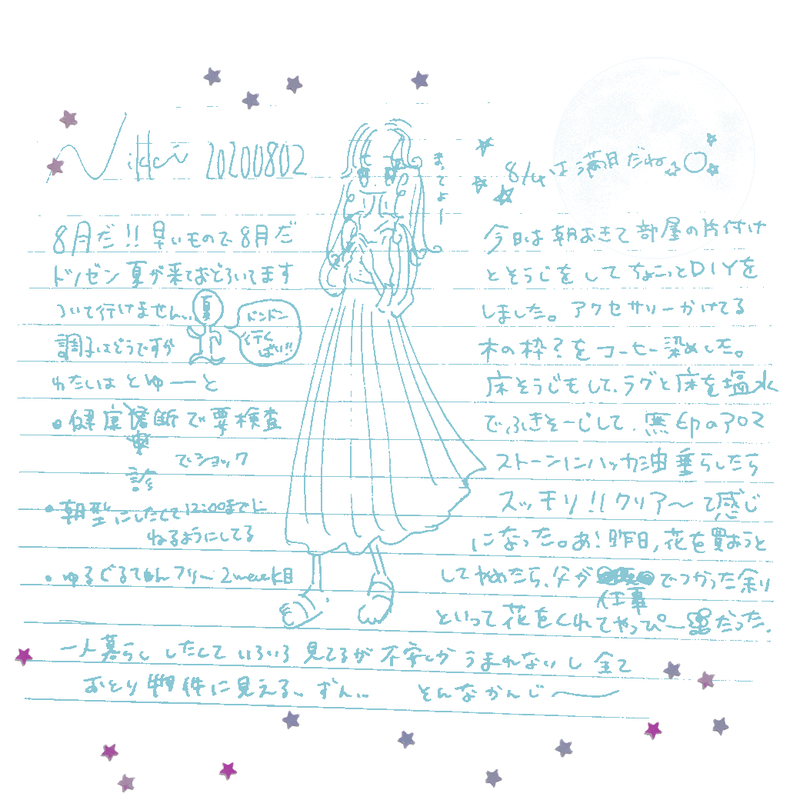 Nikki 20200802
まってよー
8/4は満月だね
8月だ!!早いもので8月だ
ドノゼン夏が来ておどろいてます
ついて行けません...
夏
ドンドン
行く
ばい!!
調子はどうですか
わたしはとゆーーと
健康診断で要検査
でショック
朝型にしたくて12:00までに
ねるようにしてる
ゆるぐるてめんフリー 2week目
今日は朝おきて部屋の片付け
とそうじをしてちょこっとDIYを
しました。アクセサリーかけてる
木の枠?をコーヒー染めした。
床そうじもして、ラグと床を塩水
でふきそーじして、無印のアロマ
ストーンにハッカ油垂らしたら
スッキリ!!クリア〜て感じ
になった。あ!昨日、花を買おうと
してやめたら、父が仕事でつかった余り
といって花をくれてやっぴ〜だった.
一人暮らししたくていろいろ見てるが不安しかうまれないし全て
おとり物件に見える、ずん... そんなかんじ〜